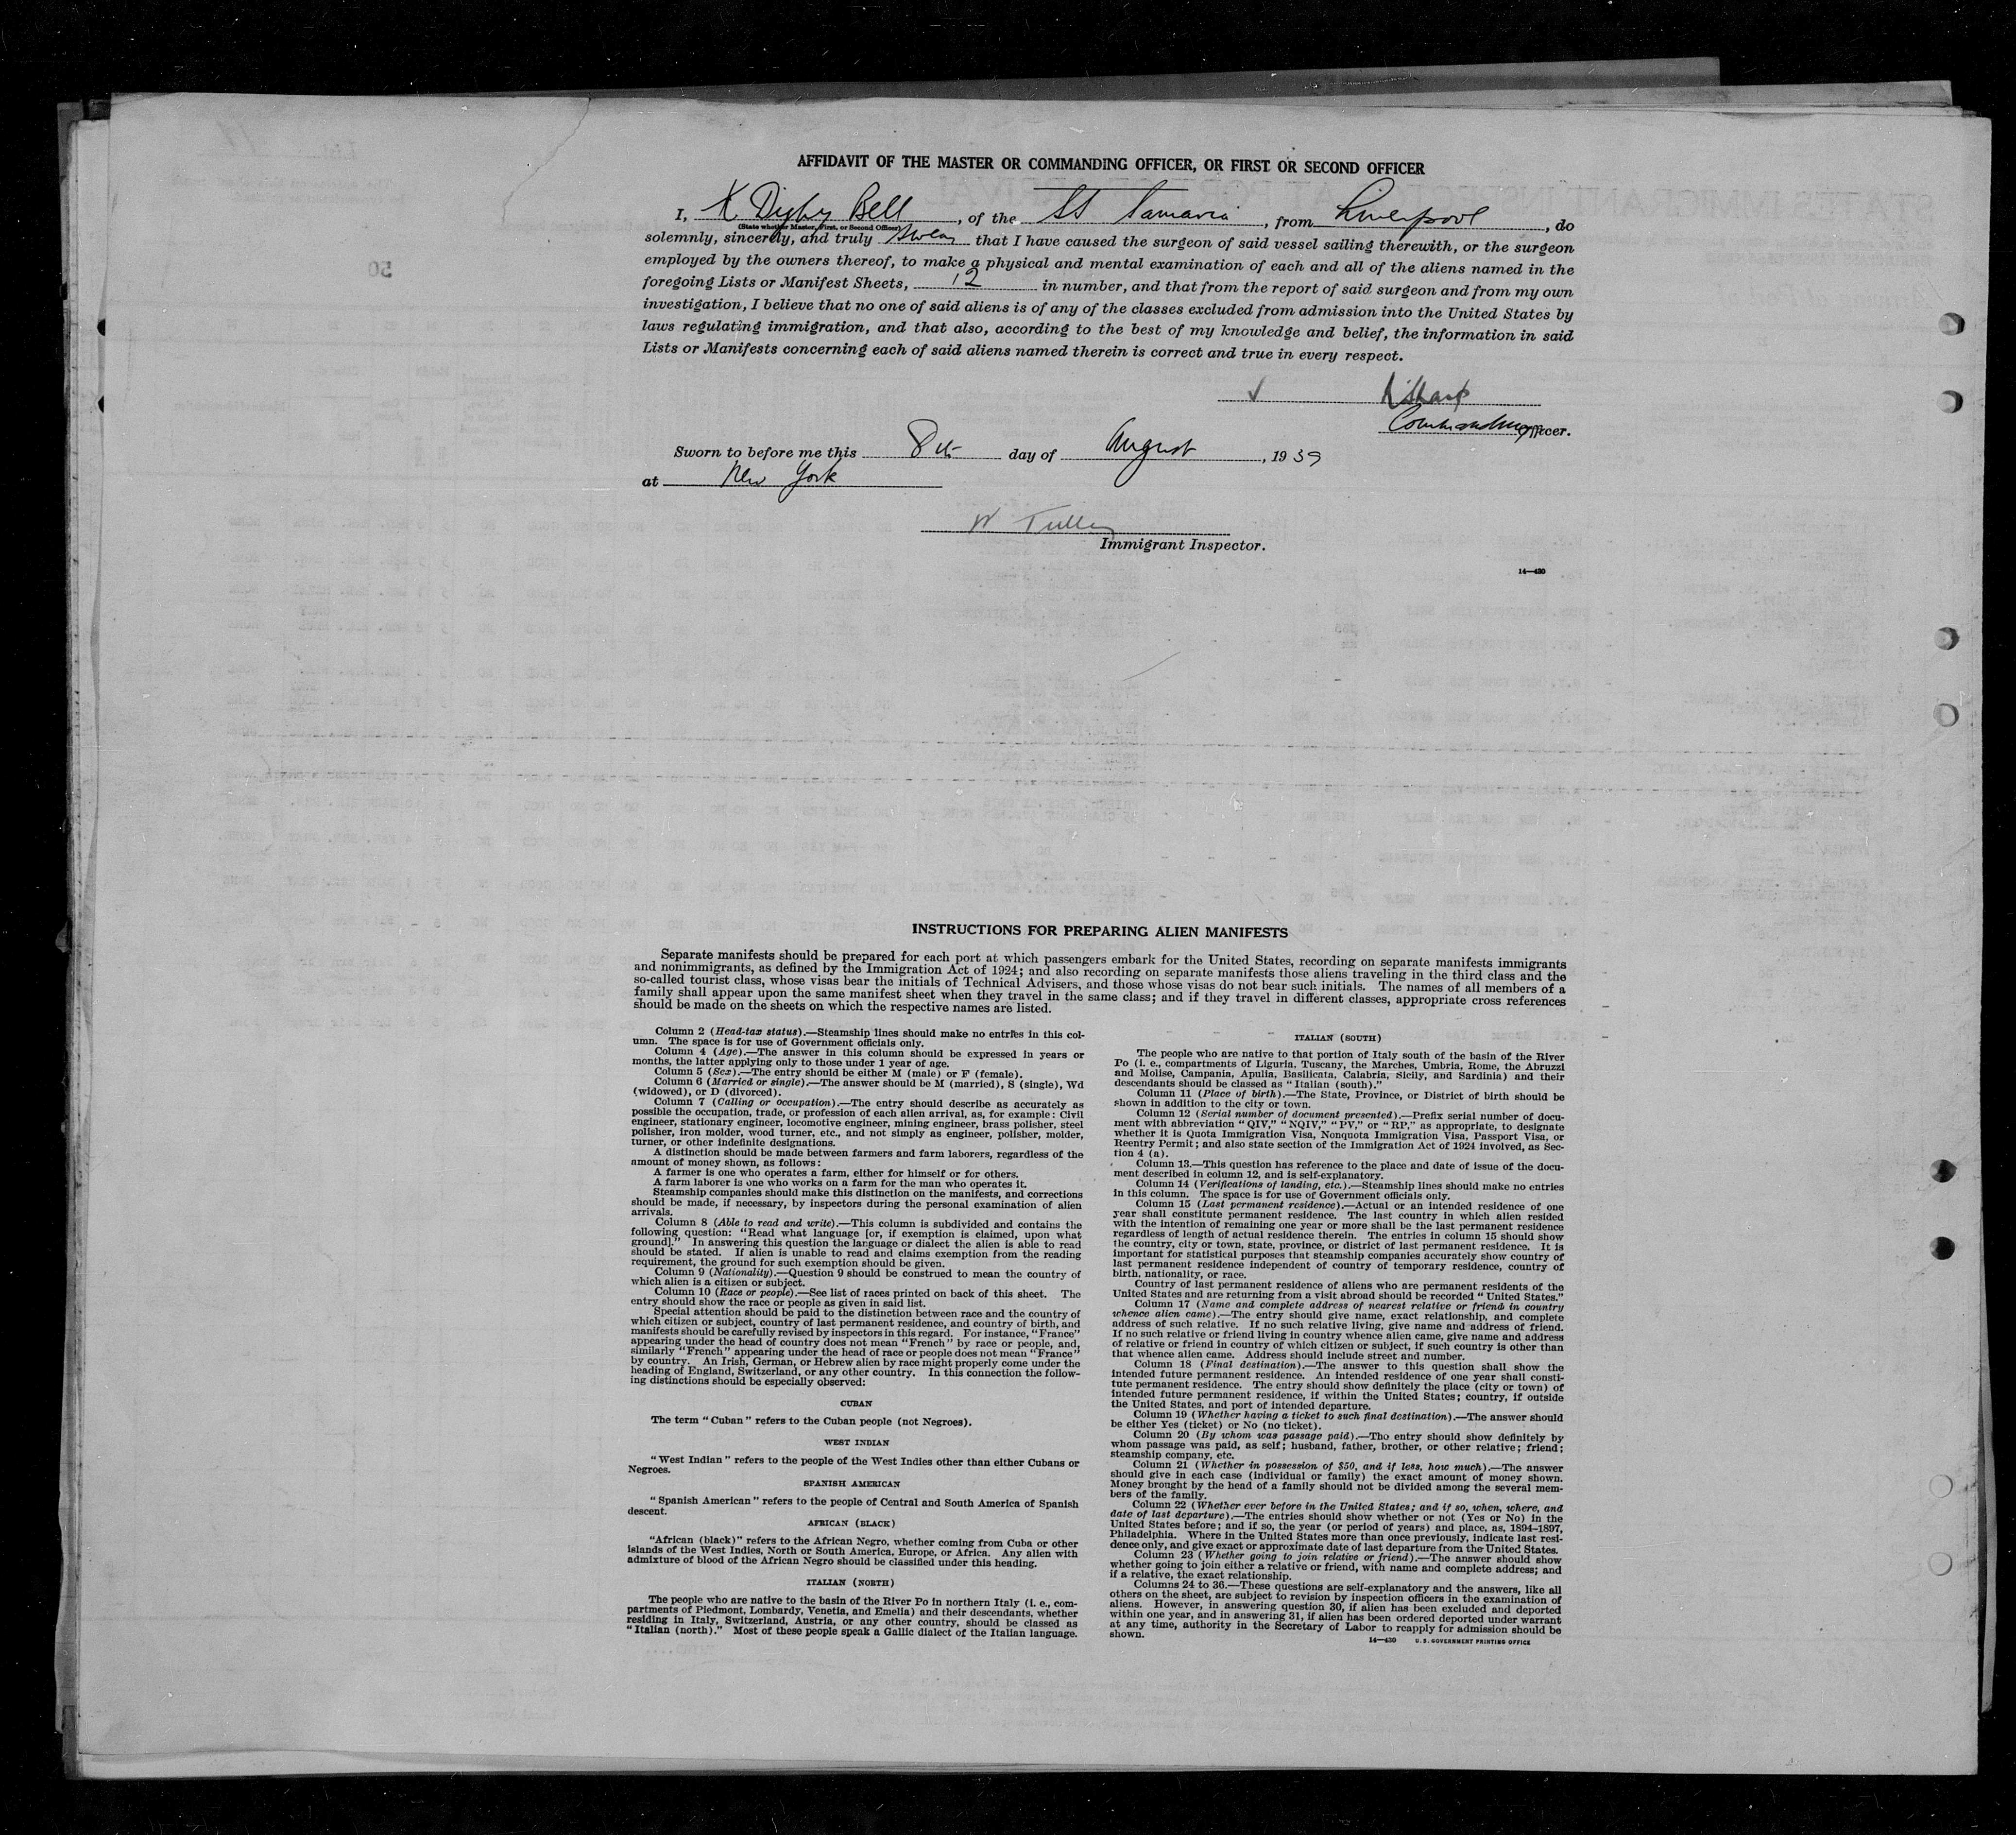 AFFIDAVIT OF THE MASTER OR COMMANDING OFFICER, OR FIRST OR SECOND OFFICER
I, K Digby Bell, of the SS Samaria, from Liverpool, do
(State whether Master, First, or Second Officer)
solemnly, sincerely, and truly swear that I have caused the surgeon of said vessel sailing therewith, or the surgeon
employed by the owners thereof, to make a physical and mental examination of each and all of the aliens named in the
foregoing Lists or Manifest Sheets, 12 in number, and that from the report of said surgeon and from my own
investigation, I believe that no one of said aliens is of any of the classes excluded from admission into the United States by
laws regulating immigration, and that also, according to the best of my knowledge and belief, the information in said
Lists or Manifests concerning each of said aliens named therein is correct and true in every respect.
Sharp
Commanding Officer.
Sworn to before me this 8th day of August, 1939
at New York
W Tulley
Immigrant Inspector.
14—430
INSTRUCTIONS FOR PREPARING ALIEN MANIFESTS
Separate manifests should be prepared for each port at which passengers embark for the United States, recording on separate manifests immigrants
and nonimmigrants, as defined by the Immigration Act of 1924; and also recording on separate manifests those aliens traveling in the third class and the
so-called tourist class, whose visas bear the initials of Technical Advisers, and those whose visas do not bear such initials. The names of all members of a
family shall appear upon the same manifest sheet when they travel in the same class; and if they travel in different classes, appropriate cross references
should be made on the sheets on which the respective names are listed.
Column 2 (Head-tax status).—Steamship lines should make no entries in this col-
umn. The space is for use of Government officials only.
Column 4 (Age).—The answer in this column should be expressed in years or
months, the latter applying only to those under 1 year of age.
Column 5 (Sex).—The entry should be either M (male) or F (female).
Column 6 (Married or single).—The answer should be M (married), S (single), Wd
(widowed), or D (divorced).
Column 7 (Calling or occupation).—The entry should describe as accurately as
possible the occupation, trade, or profession of each alien arrival, as, for example: Civil
engineer, stationary engineer, locomotive engineer, mining engineer, brass polisher, steel
polisher, iron molder, wood turner, etc., and not simply as engineer, polisher, molder,
turner, or other indefinite designations.
A distinction should be made between farmers and farm laborers, regardless of the
amount of money shown, as follows:
A farmer is one who operates a farm, either for himself or for others.
A farm laborer is one who works on a farm for the man who operates it.
Steamship companies should make this distinction on the manifests, and corrections
should be made, if necessary, by inspectors during the personal examination of alien
arrivals.
Column 8 (Able to read and write).—This column is subdivided and contains the
following question: "Read what language [or, if exemption is claimed, upon what
ground]." In answering this question the language or dialect the alien is able to read
should be stated. If alien is unable to read and claims exemption from the reading
requirement, the ground for such exemption should be given.
Column 9 (Nationality).—Question 9 should be construed to mean the country of
which alien is a citizen or subject.
Column 10 (Race or people).—See list of races printed on back of this sheet. The
entry should show the race or people as given in said list.
Special attention should be paid to the distinction between race and the country of
which citizen or subject, country of last permanent residence, and country of birth, and
manifests should be carefully revised by inspectors in this regard. For instance, "France"
appearing under the head of country does not mean "French" by race or people, and,
similarly "French" appearing under the head of race or people does not mean "France"
by country. An Irish, German, or Hebrew alien by race might properly come under the
heading of England, Switzerland, or any other country. In this connection the follow-
ing distinctions should be especially observed:
CUBAN
The term "Cuban" refers to the Cuban people (not Negroes).
WEST INDIAN
"West Indian" refers to the people of the West Indies other than either Cubans or
Negroes.
SPANISH AMERICAN
"Spanish American" refers to the people of Central and South America of Spanish
descent.
AFRICAN (BLACK)
"African (black)" refers to the African Negro, whether coming from Cuba or other
islands of the West Indies, North or South America, Europe, or Africa. Any alien with
admixture of blood of the African Negro should be classified under this heading.
ITALIAN (NORTH)
The people who are native to the basin of the River Po in northern Italy (i. e., com-
partments of Piedmont, Lombardy, Venetia, and Emelia) and their descendants, whether
residing in Italy, Switzerland, Austria, or any other country, should be classed as
"Italian (north)." Most of these people speak a Gallic dialect of the Italian language.
ITALIAN (SOUTH)
The people who are native to that portion of Italy south of the basin of the River
Po (i. e., compartments of Liguria, Tuscany, the Marches, Umbria, Rome, the Abruzzi
and Molise, Campania, Apulia, Basilicata, Calabria, Sicily, and Sardinia) and their
descendants should be classed as "Italian (south)."
Column 11 (Place of birth).—The State, Province, or District of birth should be
shown in addition to the city or town.
Column 12 (Serial number of document presented).—Prefix serial number of docu-
ment with abbreviation "QIV," "NQIV," "PV," or "RP," as appropriate, to designate
whether it is Quota Immigration Visa, Nonquota Immigration Visa, Passport Visa, or
Reentry Permit; and also state section of the Immigration Act of 1924 involved, as Sec-
tion 4 (a).
Column 13.—This question has reference to the place and date of issue of the docu-
ment described in column 12, and is self-explanatory.
Column 14 (Verifications of landing, etc.).—Steamship lines should make no entries
in this column. The space is for use of Government officials only.
Column 15 (Last permanent residence).—Actual or an intended residence of one
year shall constitute permanent residence. The last country in which alien resided
with the intention of remaining one year or more shall be the last permanent residence
regardless of length of actual residence therein. The entries in column 15 should show
the country, city or town, state, province, or district of last permanent residence. It is
important for statistical purposes that steamship companies accurately show country of
last permanent residence independent of country of temporary residence, country of
birth, nationality, or race.
Country of last permanent residence of aliens who are permanent residents of the
United States and are returning from a visit abroad should be recorded "United States."
Column 17 (Name and complete address of nearest relative or friend in country
whence alien came).—The entry should give name, exact relationship, and complete
address of such relative. If no such relative living, give name and address of friend.
If no such relative or friend living in country whence alien came, give name and address
of relative or friend in country of which citizen or subject, if such country is other than
that whence alien came. Address should include street and number.
Column 18 (Final destination).—The answer to this question shall show the
intended future permanent residence. An intended residence of one year shall consti-
tute permanent residence. The entry should show definitely the place (city or town) of
intended future permanent residence, if within the United States; country, if outside
the United States, and port of intended departure.
Column 19 (Whether having a ticket to such final destination).—The answer should
be either Yes (ticket) or No (no ticket).
Column 20 (By whom was passage paid).—The entry should show definitely by
whom passage was paid, as self; husband, father, brother, or other relative; friend;
steamship company, etc.
Column 21 (Whether in possession of $50, and if less, how much).—The answer
should give in each case (individual or family) the exact amount of money shown.
Money brought by the head of a family should not be divided among the several mem-
bers of the family.
Column 22 (Whether ever before in the United States; and if so, when, where, and
date of last departure).—The entries should show whether or not (Yes or No) in the
United States before; and if so, the year (or period of years) and place, as, 1894–1897,
Philadelphia. Where in the United States more than once previously, indicate last resi-
dence only, and give exact or approximate date of last departure from the United States.
Column 23 (Whether going to join relative or friend).—The answer should show
whether going to join either a relative or friend, with name and complete address; and
if a relative, the exact relationship.
Columns 24 to 36.—These questions are self-explanatory and the answers, like all
others on the sheet, are subject to revision by inspection officers in the examination of
aliens. However, in answering question 30, if alien has been excluded and deported
within one year, and in answering 31, if alien has been ordered deported under warrant
at any time, authority in the Secretary of Labor to reapply for admission should be
shown.
14—430 U. S. GOVERNMENT PRINTING OFFICE